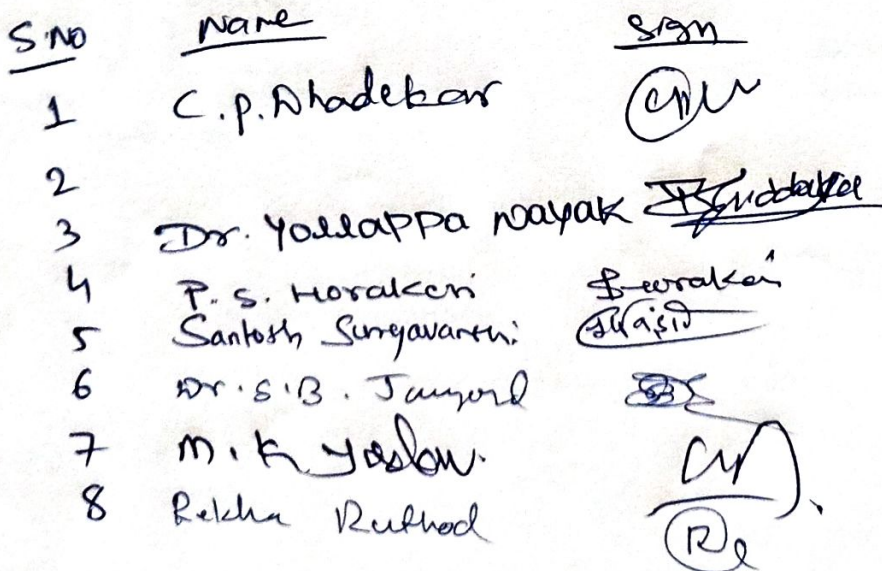 S.NO Name Sign
1 C.P. Dhadekar
2
3 Dr. Yallappa Nayak
4 P. S. Horakeri Horakeri
5 Santosh Suryavanshi
6 Dr. S.B.
7 M.K Yadav.
8 Rekha Rathod